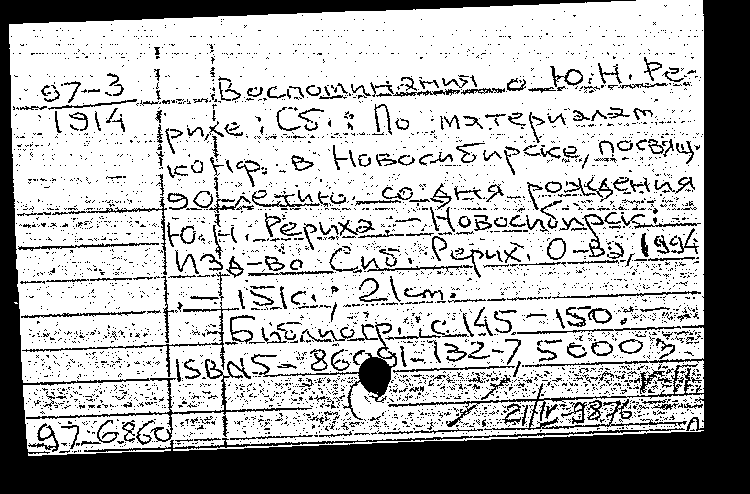 97-3 Воспоминания о Ю.Н. Ре-
1914 рихе: Сб.: По материалам
конф. в Новосибирске, посвящ.
90-летию со дня рождения
Ю.Н. Рериха. — Новосибирск:
Изд-во Сиб. Рерих. О-ва, 1994
. — 151с.; 21см.
Библиогр.: с 145-150. —
ISBN 5-86091-132-7, 5000 э.
97-6860